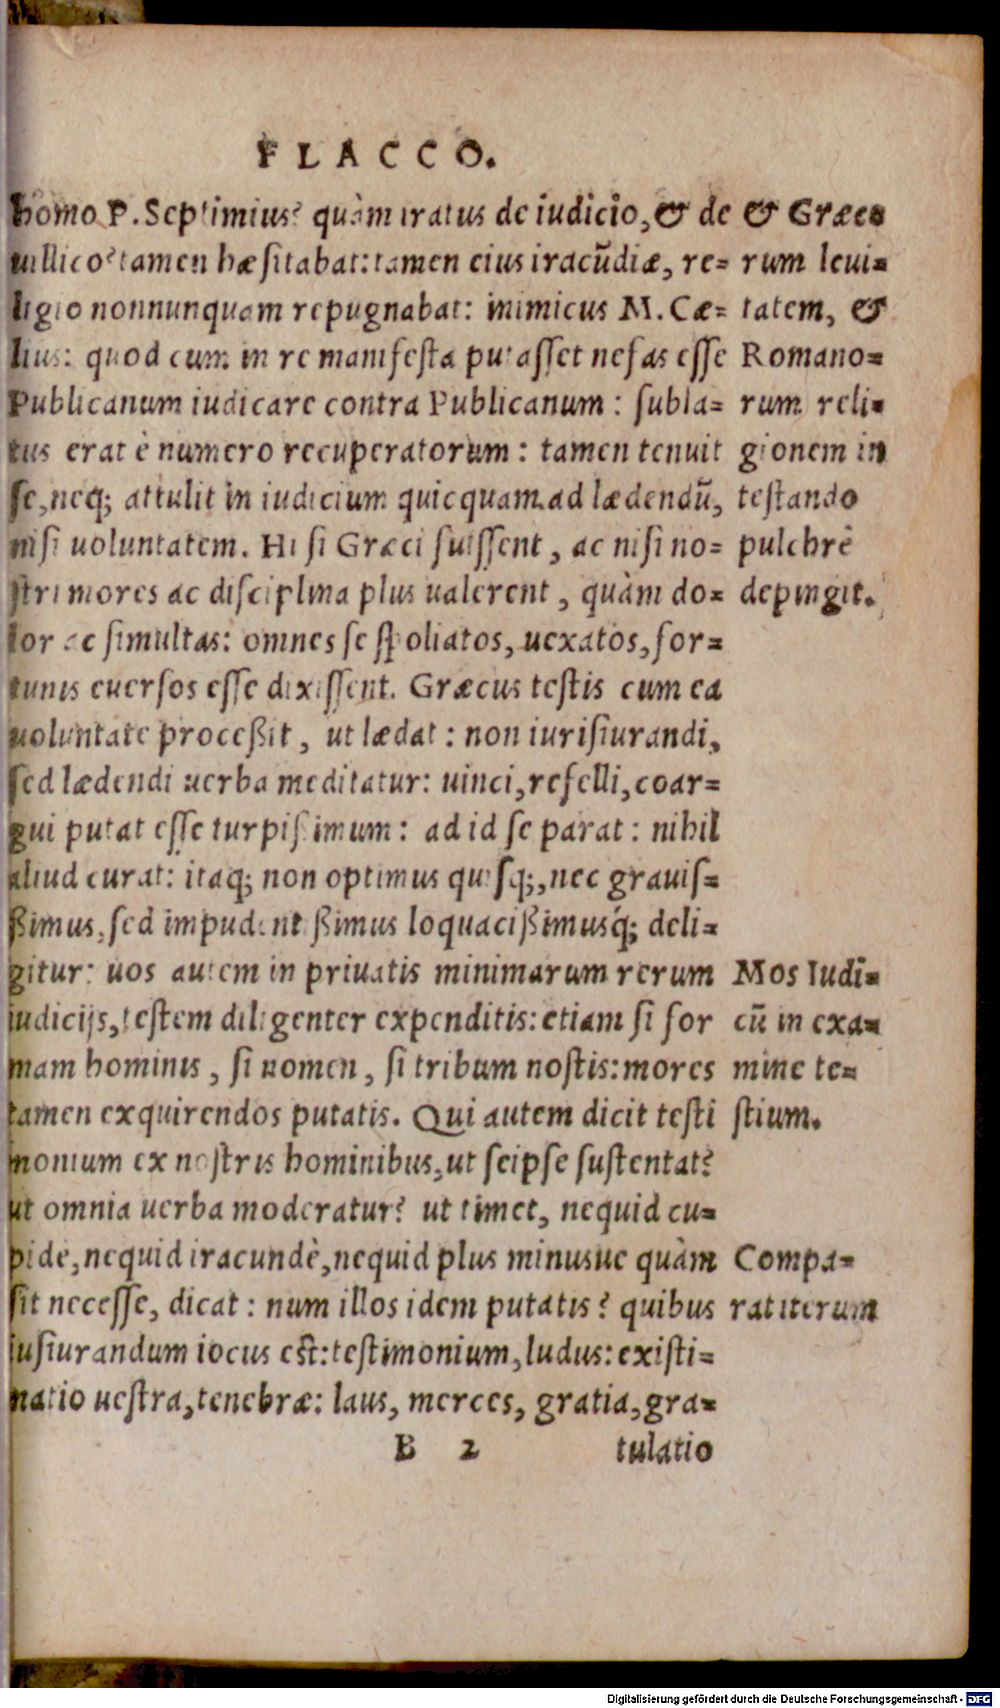 FLACCO.
homo P. Septimius? quàm iratus de iudicio, & de
uillico? tamen hæsitabat: tamen eius iracũdiæ, re=
ligio nonnunquam repugnabat: inimicus M. Cæ=
lius: quod cum in re manifesta putasset nefas esse
Publicanum iudicare contra Publicanum: subla=
tus erat è numero recuperatorum: tamen tenuit
se, neq; attulit in iudicium quicquam ad lædendũ,
nisi uoluntatem. Hi si Græci fuissent, ac nisi no=
stri mores ac disciplina plus ualerent, quàm do=
lor ac simultas: omnes se spoliatos, uexatos, for=
tunis euersos esse dixissent. Græcus testis cum ea
uoluntate proceßit, ut lædat: non iurisiurandi,
sed lædendi uerba meditatur: uinci, refelli, coar=
gui putat esse turpißimum: ad id se parat: nihil
aliud curat: itaq; non optimus quisq;, nec grauis=
ßimus, sed impudentißimus loquacißimusq́; deli=
gitur: uos autem in priuatis minimarum rerum
iudicijs, testem diligenter expenditis: etiam si for
mam hominis, si nomen, si tribum nostis: mores
tamen exquirendos putatis. Qui autem dicit testi
monium ex nostris hominibus, ut seipse sustentat?
ut omnia uerba moderatur? ut timet, nequid cu=
pide, nequid iracundè, nequid plus minusue quàm
sit necesse, dicat: num illos idem putatis? quibus
iusiurandum iocus est: testimonium, ludus: existi=
natio uestra, tenebræ: laus, merces, gratia, gra=
B 2 tulatio
& Græco
rum leui=
tatem, &
Romano=
rum reli=
gionem in
testando
pulchrè
depingit.
Mos Iudi=
cũ in exa=
mine te=
stium.
Compa=
rat iterum
Digitalisierung gefördert durch die Deutsche Forschungsgemeinschaft - DFG